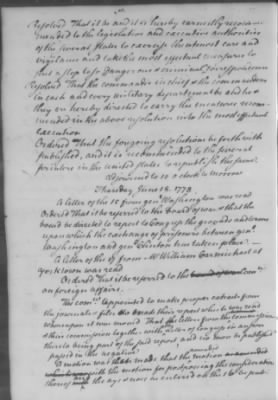 Resolved That it be and it is hereby earnestly recom-
mended to the legislative and executive authorities
of the several states to exercise the utmost care and
vigilance and take the most effectual measures to
put a stop to so dangerous & criminal correspondence
Resolved That the commander in chief & the commanders
in each and every military department be and he &
they are hereby directed to carry the measures recom-
mended in the above resolution into the most effectual
execution
Ordered That the foregoing resolutions be forthwith
published, and it is recommended to the several
printers in the united states to republish the same
Adjourned to 10 o clock to morrow
Thursday, June 18. 1778
A letter of the 15 from gen Washington was read
Ordered that it be referred to the board of war & that the
board be directed to report to Congress the grounds and terms
upon which the exchange of prisoners between genl
Washington and genl Clinton has taken place.
A letter of the 17 from Mr William Carmichael at
York town was read
Ordered that it be referred to the com
on foreign affairs.
The comee appointed to make proper extracts from
the journals &c brought in their report which was read
whereupon it was moved That the letter from the commissioners
& their commission together with the letter of Congress in answer
thereto being part of the said report, and now to be published
passed in the negative
A motion was made that the motion
with the motion for postponing the consideration
thereof and the ays & noes be entered